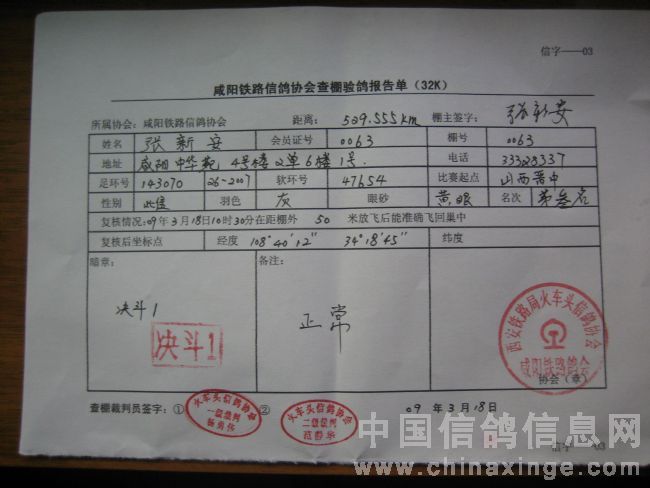 信字——03
咸阳铁路信鸽协会查棚验鸽报告单（32K）
所属协会：咸阳铁路信鸽协会 距离：509.555km 棚主签字：张新安
姓名 张新安 会员证号 0063 棚号 0063
地址 咸阳中华苑 4号楼2单6楼1号. 电话 33323337
足环号 143070 26-2007 软环号 47654 比赛起点 山西晋中
性别 羽色 灰 眼砂 黄眼 名次 第叁名
复核情况：09年3月18日10时30分在距棚外 50 米放飞后能准确飞回巢中
复核后坐标点 经度 108°40′12″ 34°18′45″ 纬度
暗章： 备注：
决斗1 正常
决斗1
西安铁路局火车头信鸽协会
咸阳铁路鸽会
协会（章）
查棚裁判员签字：① ②
火车头信鸽协会
一级裁判
火车头信鸽协会
二级裁判
09 年 3 月 18 日
中国信鸽信息网
信字——03
www.chinaxinge.com